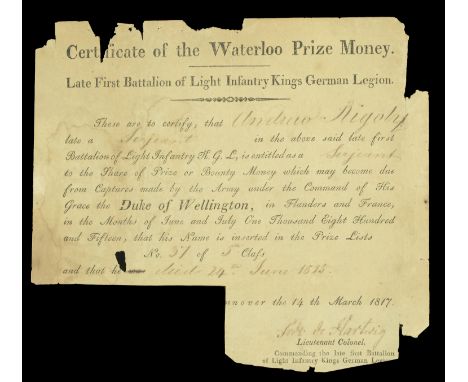 Certificate of the Waterloo Prize Money.
Late First Battalion of Light Infantry Kings German Legion.
These are to certify, that Andrew Rigoby
late a Serjeant in the above said late first
Battalion of Light Infantry K. G. L, is entitled as a Serjeant
to the Share of Prize or Bounty Money which may become due
from Captures made by the Army under the Command of His
Grace the Duke of Wellington, in Flanders and France,
in the Months of June and July One Thousand Eight Hundred
and Fifteen, that his Name is inserted in the Prize Lists
No. 37 of 5 Class
and that he died 24th June 1815.
nnover the 14 th March 1817.
de Hartwig
Lieutenant Colonel.
Commanding the late first Battalion
of Light Infantry Kings German Legion